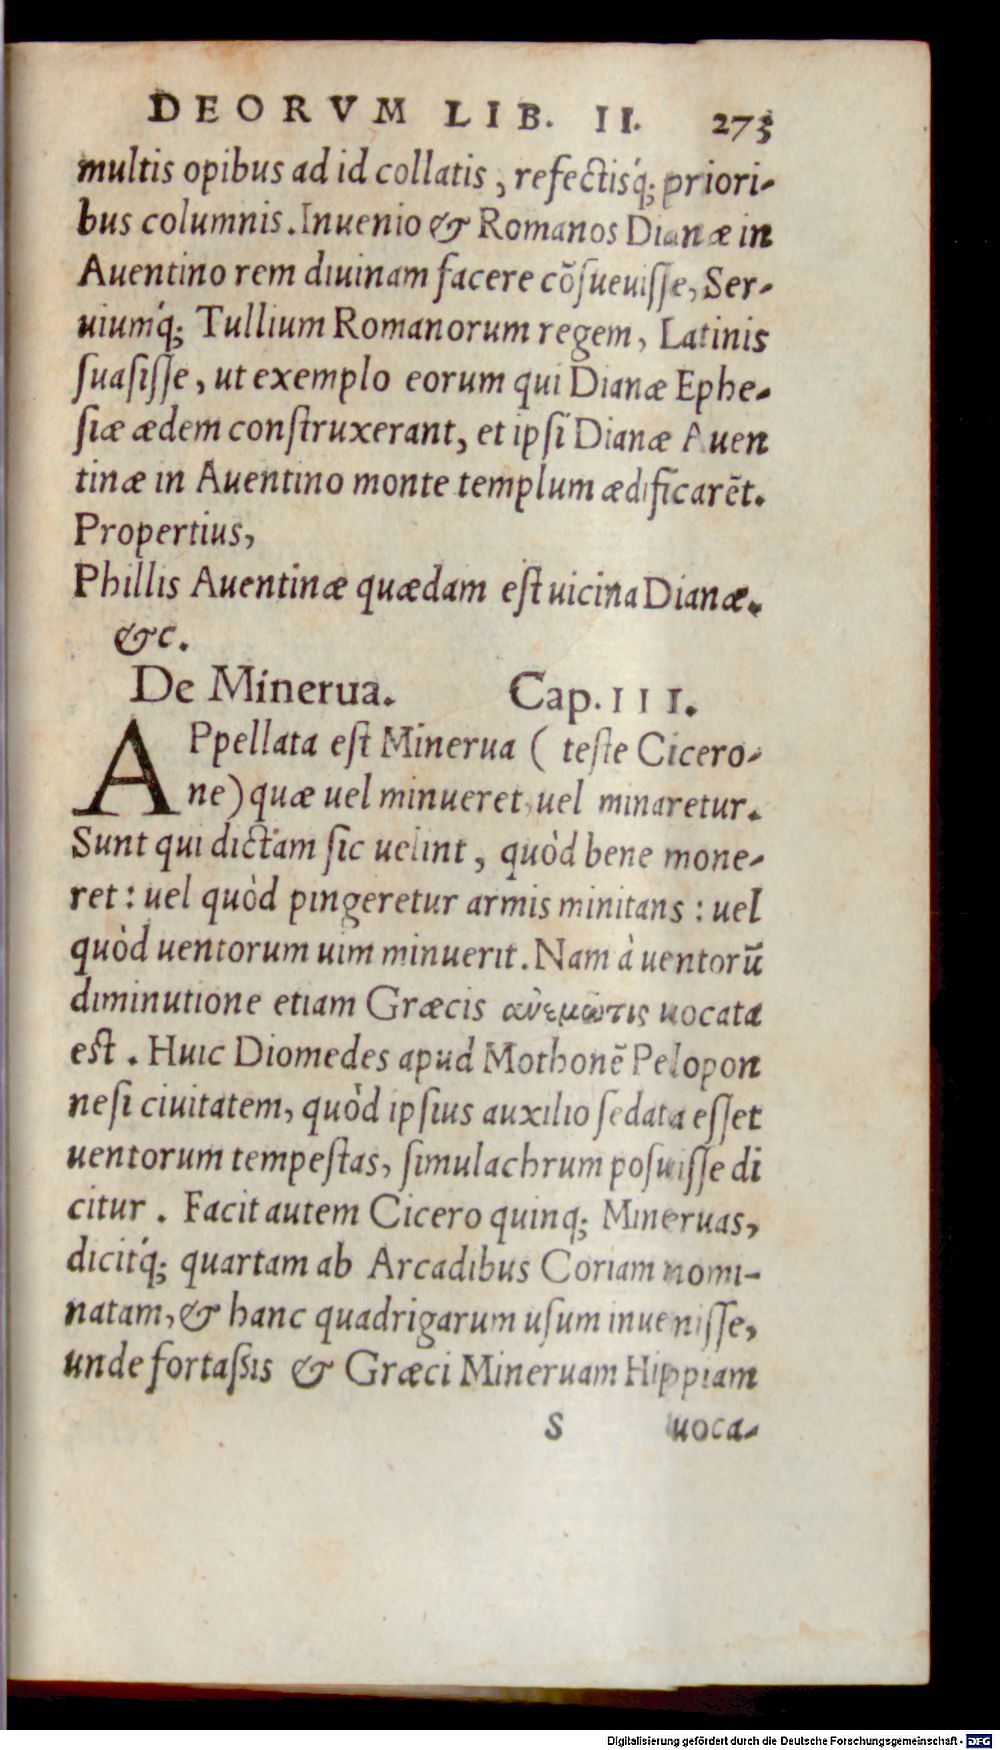 DEORVM LIB. II. 273
multis opibus ad id collatis, refectisq́; priori-
bus columnis. Inuenio & Romanos Dianæ in
Auentino rem diuinam facere cõsueuiſſe, Ser-
uiumq́; Tullium Romanorum regem, Latinis
ſuaſiſſe, ut exemplo eorum qui Dianæ Ephe-
ſiæ ædem conſtruxerant, et ipſi Dianæ Auen
tinæ in Auentino monte templum ædificarẽt.
Propertius,
Phillis Auentinæ quædam eſt uicina Dianæ.
&c.
De Minerua. Cap. III.
APpellata eſt Minerua (teſte Cicero-
ne) quæ uel minueret, uel minaretur.
Sunt qui dictam ſic uelint, quòd bene mone-
ret: uel quòd pingeretur armis minitans: uel
quòd uentorum uim minuerit. Nam à uentorũ
diminutione etiam Græcis ανεμῶτις uocata
eſt. Huic Diomedes apud Mothonẽ Pelopon
neſi ciuitatem, quòd ipſius auxilio ſedata eſſet
uentorum tempeſtas, ſimulachrum poſuiſſe di
citur. Facit autem Cicero quinq; Mineruas,
dicitq́; quartam ab Arcadibus Coriam nomi-
natam, & hanc quadrigarum uſum inueniſſe,
unde fortaſsis & Græci Mineruam Hippiam
S uoca-
Digitalisierung gefördert durch die Deutsche Forschungsgemeinschaft - DFG